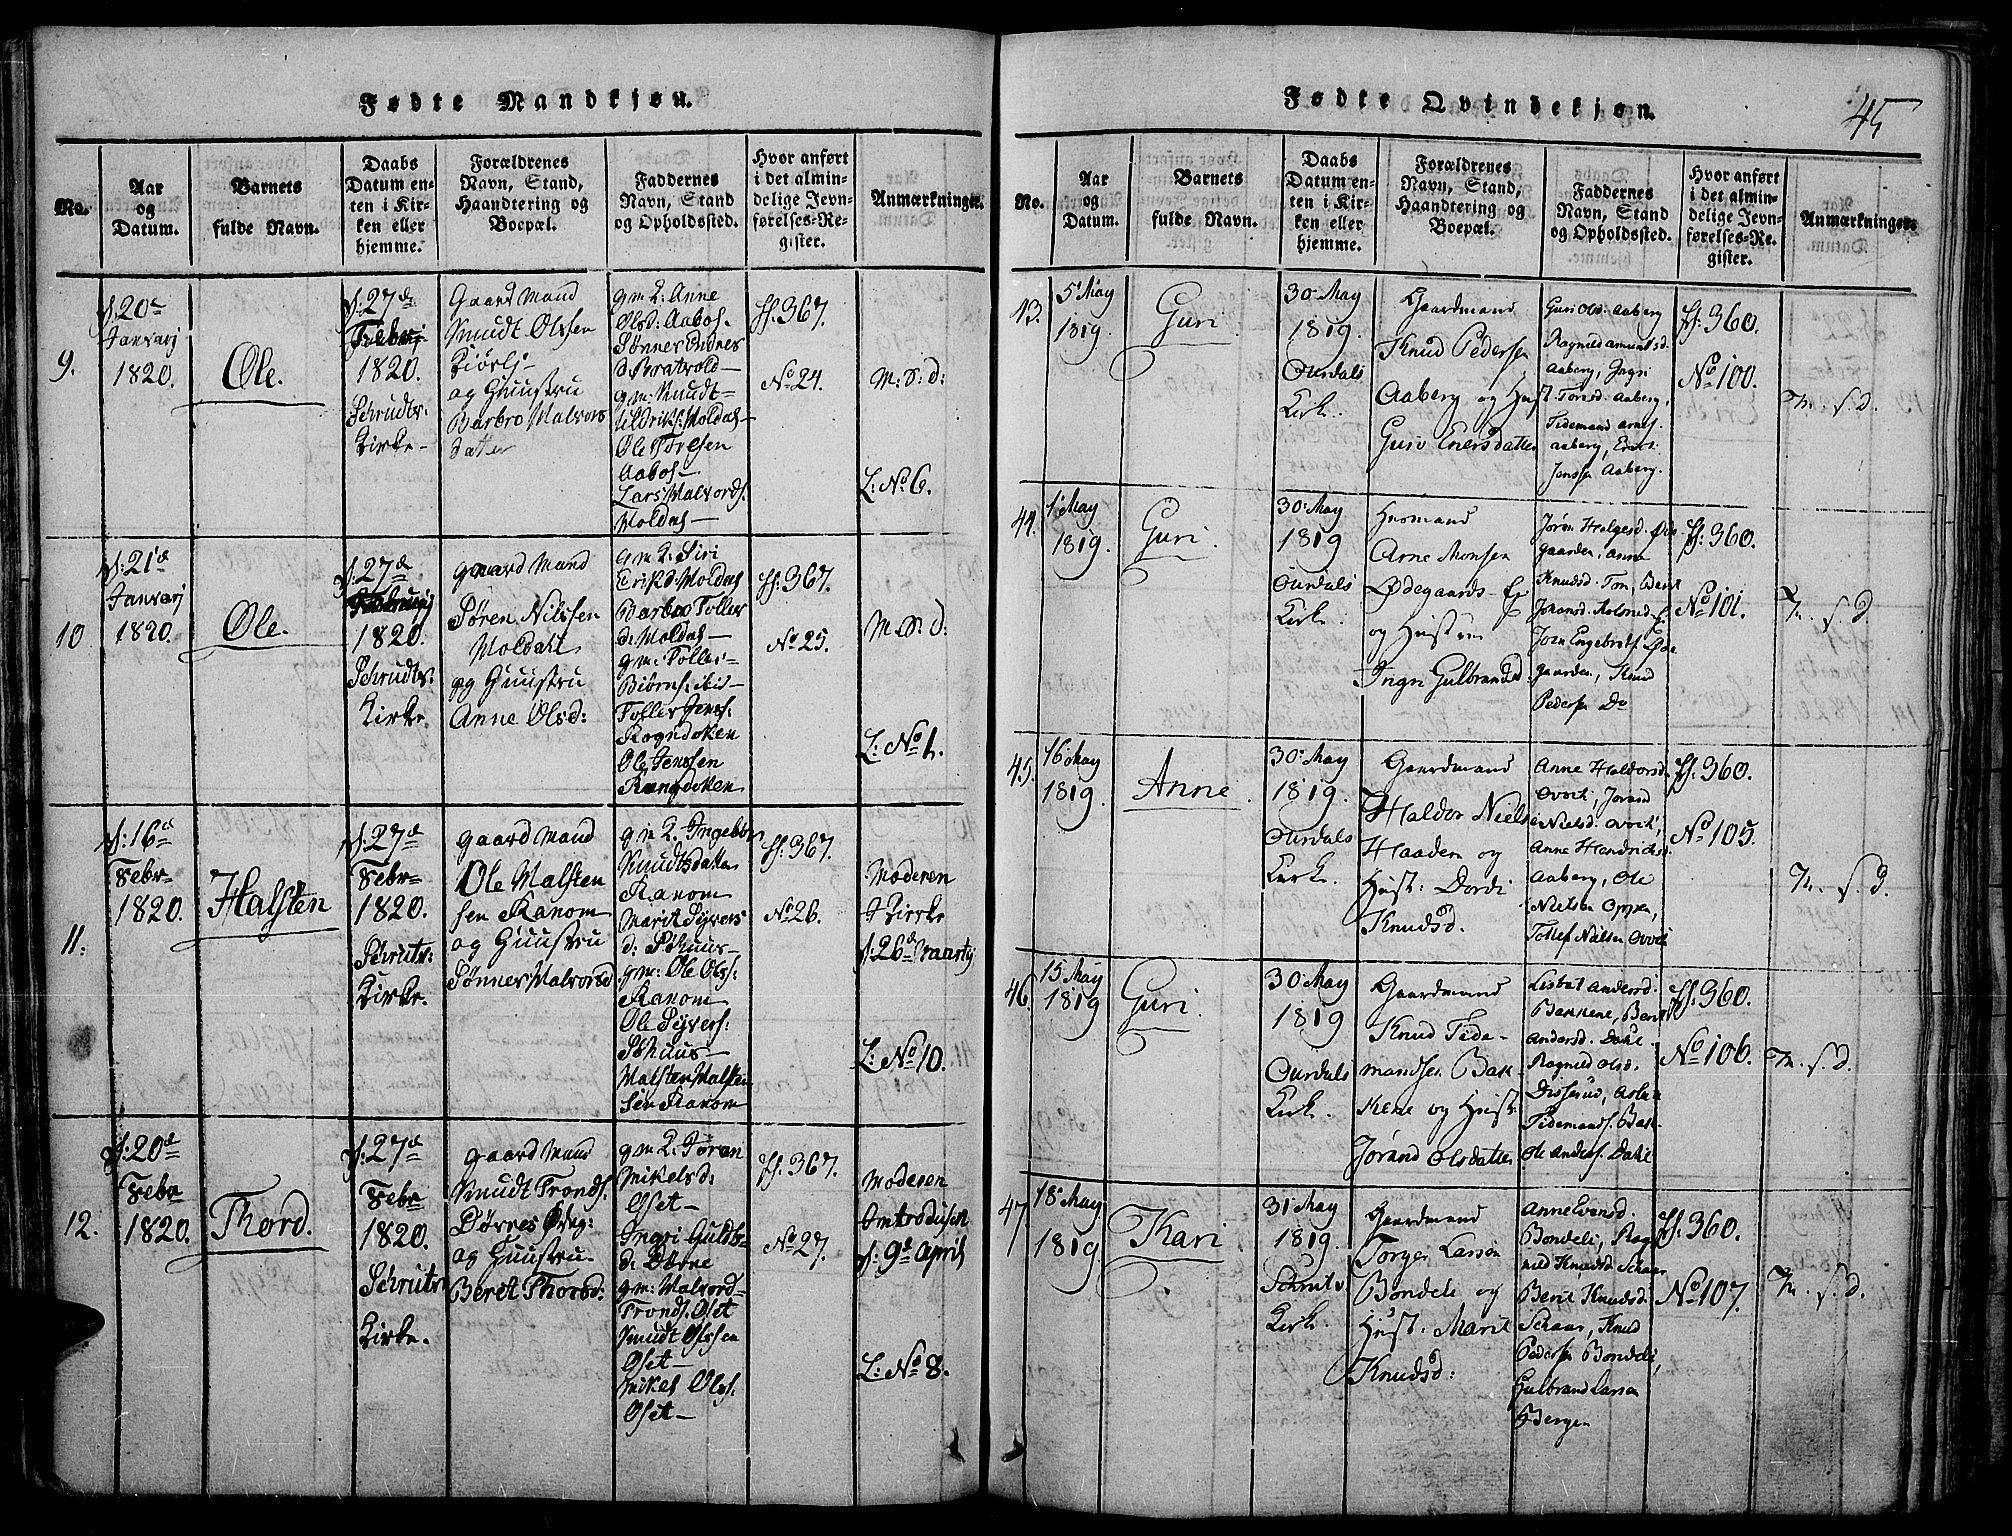 Fødte Mandkjøn.
No.
Aar
og
Datum.
Barnets
fulde Navn.
Daabs
Datum en-
ten i Kir-
ken eller
hjemme.
Forældrenes
Navn, Stand,
Haandtering og
Boepæl.
Faddernes
Navn, Stand
og Opholdssted.
Hvor anført
i det almin-
delige Jevn-
førelses-Re-
gister.
Anmærkninger.
9.
d: 20de
Januarj
1820.
Ole.
d: 27de
1820.
Schrudts-
Kirke-
Gaard Mand
Knudt Olssen
og Huustru
Barbro Halvors
datter
gm 2: Anne
Olsd: Aabos-
Sønnev Endres
d:
gm: Knudt-
Ole Toresen
Aabos-
Lars Halvords.
Moldas-
ff. 367.
No 24.
M: S: d:
L: No 6.
10
d: 21de
Januarj
1820.
Ole.
d: 27de
1820.
Schrudts-
Kirke.
gaard Mand
Søren Nilssen
og Huustru
Anne Olsd:
gm 2: Siri
Erikd: Moldas
Barbro Toller
d: Moldas-
gm: Toller-
Biørns: ibid-
Toller Jenss:
Rogndoken
Ole Jenssen
Rangdoken
ff. 367.
No 25.
M: S: d:
L: No 1.
11.
d: 16d
Febr-
1820.
Halsten
d: 27de
Febr-
1820.
Schruts-
Kirke.
gaard Mand
Ole Halsten
sen Ranom
og Huustru
Sønnev Halvorsd
gm 2. Ingebor
Knudtsdatter
Ranom
Marit Syvers
d:
gm: Ole Olss:
Ranom
Ole Syvers:
Halsten Halsten
sen Ranom
ff. 367.
No 26.
Moderen
I Kirke
d: 26de Martj
L: No 10.
12.
d: 20de
Febr
1820.
Thord.
d: 27de
Febr
1820.
Schruts
Kirke.
gaard Mand
Knudt Tronds.
og Huustru-
Beret Thorsd:
gm 2. Joran
Mikelsd:
Oset-
Ingri Gulds-
d: Dørre
gm: Halvord-
Tronds. Oset
Knudt Olssen
Oset-
Mikel Olss.
Oset-
ff. 367.
No 27.
Moderen
Introdusen
d: 9de April
L: No 8.
Fødte Qvindekjøn.
45
No.
Aar
og
Datum.
Barnets
fulde Navn.
Daabs
Datum en-
ten i Kir-
ken eller
hjemme.
Forældrenes
Navn, Stand,
Haandtering og
Boepæl.
Faddernes
Navn, Stand
og Opholdssted.
Hvor anført
i det almin-
delige Jevn-
førelses-Re-
gister.
Anmærkninger.
43.
5t May
1819.
Guri
30t May
1819.
Ourdals
Kirk.
Gaardmand
Knud Pedersen
Aaberg og Hust
Guri Enersdatter
Guri Ols. Aaberg
Ragnild Amunds.
Aaberg, Ingri
Torsd: Aaberg,
Tidemand Arnes.
Aaberg, Erik
Jenssen Aaberg.
ff. 360.
No 100.
M. S. d.
44.
1t May
1819.
Guri.
30t May
1819
Ourdals
Kirk.
Husmand
Arne Monsen
Ødegaards-Ej
og Hustru
Ingri Gulbrandsd.
Jøran Helgesd. Øde
gaarden, Anne
Knudsd. Ton, Berit
Joen Engebretss. Øde
gaarden, Knud
Pedersen Do
ff. 360.
No 101.
M. S. d.
45.
16t May
1819.
Anne.
30t May
1819.
Ourdals
Kirk.
Gaardmand
Haldor Niels
Haaden og
Hust: Dordi
Knudsd.
Anne Haldorsd.
Nielsd:
Anne Hendriksd.
Aaberg, Ole
Nielsen Oppen,
Tollef Nielsen
ff. 360.
No 105.
M. S. d.
46.
15t May
1819
Guri.
30t May
1819
Ourdals
Kirk.
Gaardmand
Knud Tide-
mandsen Bak-
kene og Hust
Jørand Olsdatter
Lisbet Andersd.
Bakkene, Berit
Andersd. Dahl.
Ragnild Olsd.
Disserud, Aslak
Tidemands. Bak-
Ole Anders. Dahl
ff. 360.
No 106.
M. S. d.
47.
18t May
1819.
Kari.
31t May
1819.
Schrutv.
Kirk.
Gaardmand
Torger Larsen
Bondele og
Hust. Marit
Knudsd:
Anne Evensd.
Bondeli, Rag-
nild Knudsd Schaar
Berit Knudsd.
Schaar, Knud
Pedersen Bondeli,
Gulbrand Larsen
Bergen
ff. 360.
No 107.
M. S. d.